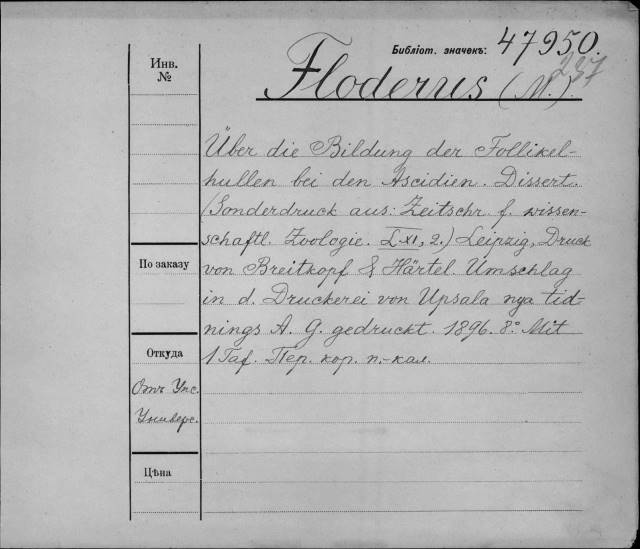 Библіот. значекъ: 47950.
237
Инв.
№
Floderus (M.)
Über die Bildung der Follikel-
hullen bei den Ascidien. Dissert.
(Sonderdruck aus: Zeitschr. f. wissen-
schaftl. Zoologie. LXI, 2.) Leipzig, Druck
По заказу
von Breitkopf & Härtel. Umschlag
in d. Druckerei von Upsala nya tid-
nings A. G. gedruckt. 1896. 8° Mit
Откуда
1 Taf. Пер. кор. п.-кал.
Отъ Упс.
Универс.
Цѣна